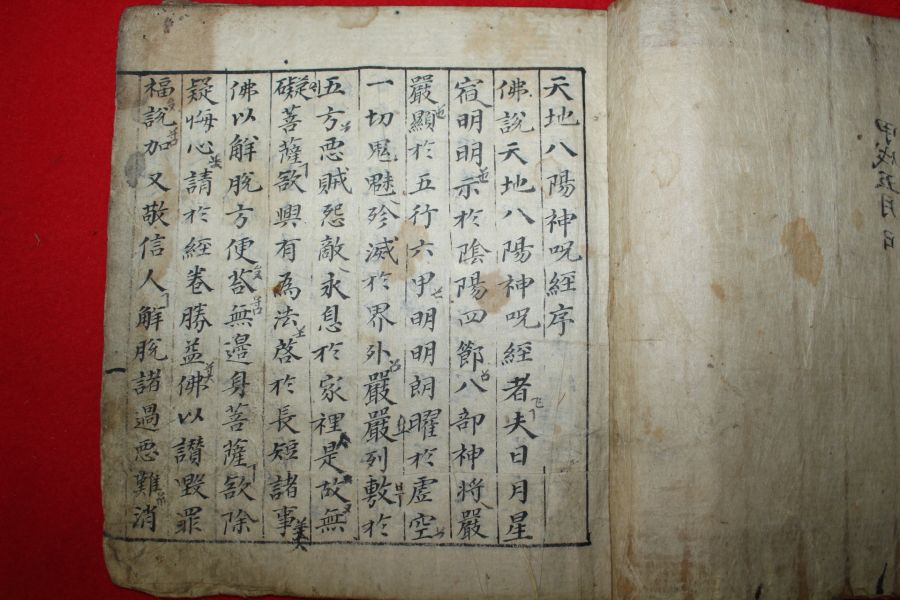 甲戌五月 日
天地八陽神呪經序
佛說天地八陽神呪經者夫日月星
宿明明示於陰陽四節八部神將嚴
嚴顯於五行六甲明明朗曜於虛空
一切鬼魅殄滅於界外嚴嚴列敷於
五方惡賊怨敵永息於家裡是故無
礙菩薩欲興有為法啓於長短諸事
佛以解脫方便荅無邊身菩薩欲除
疑悔心請於經卷勝益佛以讃毀罪
福說加又敬信人解脫諸過惡難消
一